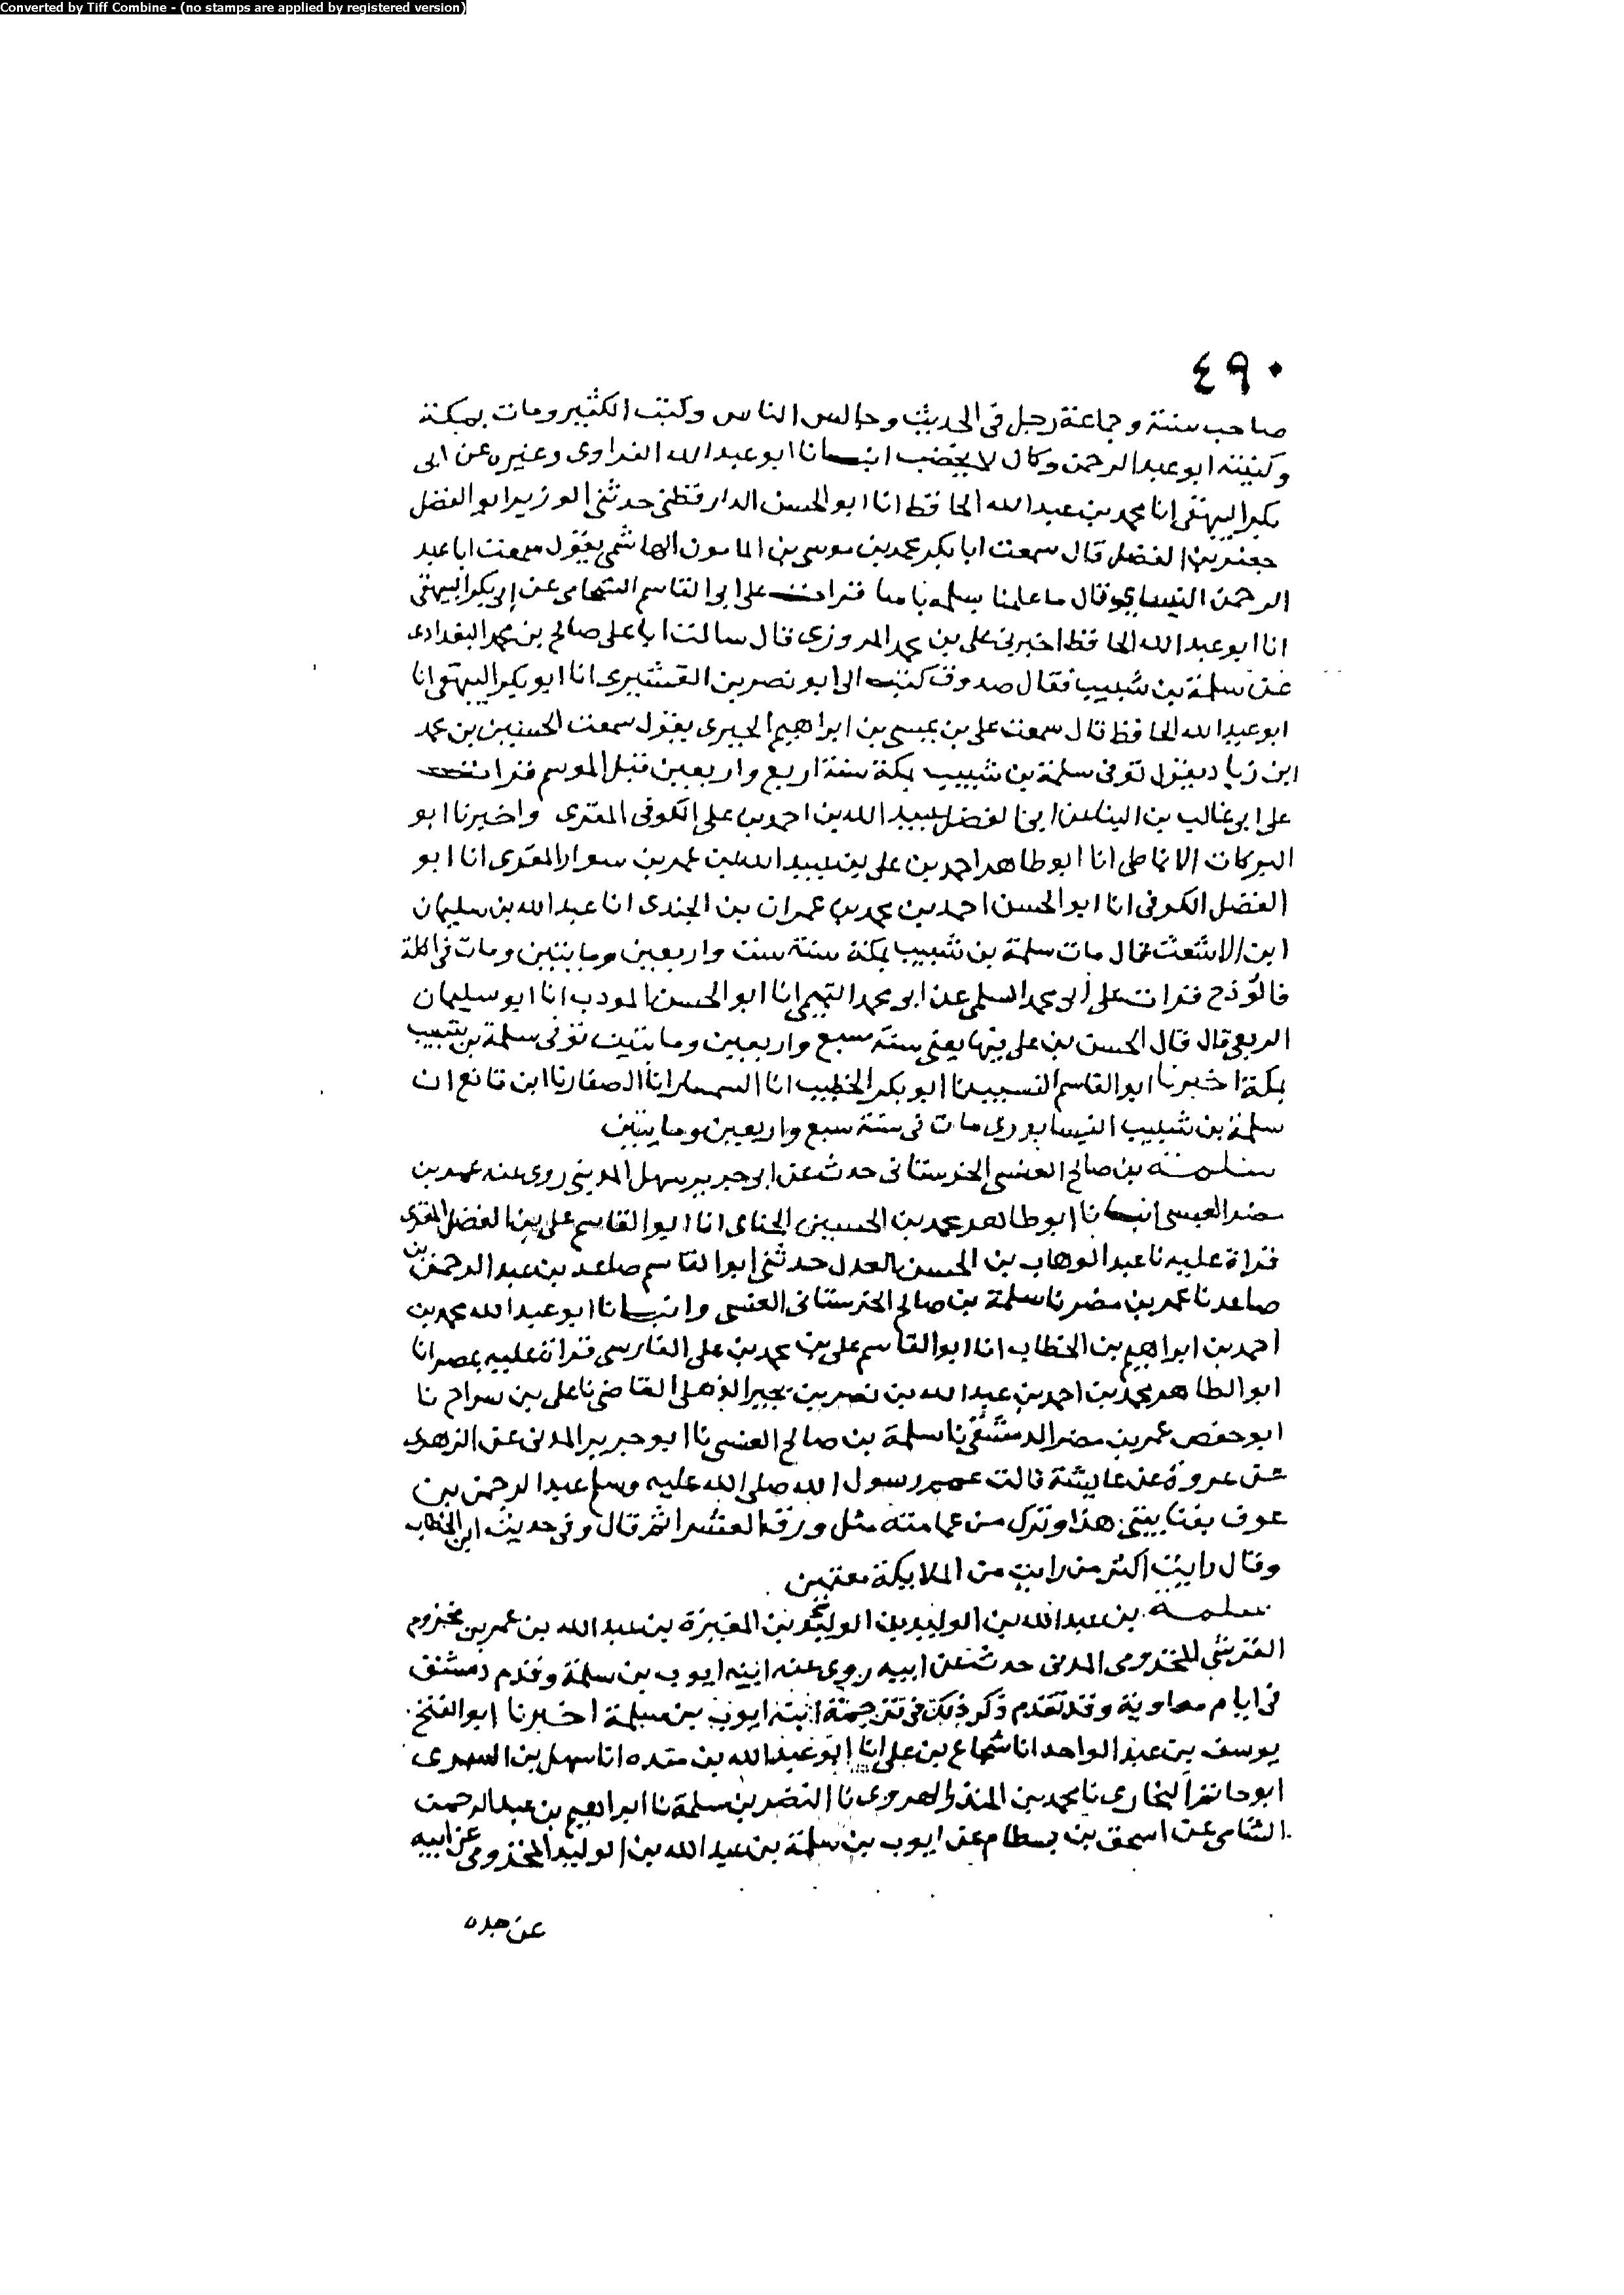 Converted by Tiff Combine - (no stamps are applied by registered version)
٤٩٠
صاحب سنة وجماعة رحل فى الحديث وجالس الناس وكتب الكثير ومات بمكة
وكنيته ابو عبد الرحمن وكان لا يخضب انبـانا ابو عبد الله الفراوى وغيره عن ابى
بكر البيهقى انا محمد بن عبد الله الحافظ انا ابو الحسن الدارقطنى حدثنى الوزير ابو الفضل
جعفر بن الفضل قال سمعت ابا بكر محمد بن موسى بن المامون الهاشمى يقول سمعت ابا عبد
الرحمن النيسابورى وقال ما علمنا بسلمة باسا قرات على ابى القاسم الشحامى عن ابى بكر البيهقى
انا ابو عبد الله الحافظ اخبرنى على بن محمد المروزى قال سالت ابا على صالح بن محمد البغدادى
عن سلمة بن شبيب فقال صدوق كتب الى ابو نصر بن القشيرى انا ابو بكر البيهقى انا
ابو عبد الله الحافظ قال سمعت على بن عيسى بن ابراهيم الحيرى يقول سمعت الحسين بن محمد
ابن زياد يقول توفى سلمة بن شبيب بمكة سنة اربع واربعين قبل الموسم قرات
على ابى غالب بن البنا عن ابى الفضل عبيد الله بن احمد بن على الكوفى المقرى واخبرنا ابو
البركات الانماطى انا ابو طاهر احمد بن على بن عبيد الله بن عمر بن سوار المقرى انا ابو
الفضل الكوفى انا ابو الحسن احمد بن محمد بن عمران بن الجندى انا عبد الله بن سليمان
ابن الاشعث قال مات سلمة بن شبيب بمكة سنة ست واربعين ومايتين ومات فى اكلة
فالوذج قرات على ابى محمد السلمى عن ابى محمد التميمى انا ابو الحسن المودب انا ابو سليمان
الربعى قال قال الحسن بن على فيها يعنى سنة سبع واربعين ومايتين توفى سلمة بن شبيب
بمكة اخبرنا ابو القاسم النسيب نا ابو بكر الخطيب انا السمسار انا الصفار نا ابن قانع ان
سلمة بن شبيب النيسابورى مات فى سنة سبع واربعين ومايتين
سلمة بن صالح العنسى الخرستانى حدث عن ابى حرير سهل المدينى روى عنه عمر بن
مضر العبسى انبـانا ابو طاهر محمد بن الحسين الجناى انا ابو القاسم على بن الفضل المقرى
قراة عليه نا عبد الوهاب بن الحسن العدل حدثنى ابو القاسم صاعد بن عبد الرحمن بن
صاعد نا عمر بن مضر نا سلمة بن صالح الخرستانى العنسى وانبـانا ابو عبد الله محمد بن
احمد بن ابراهيم بن الخطاب انا ابو القاسم على بن محمد بن على الفارسى قراة عليه بمصر انا
ابو الطاهر محمد بن احمد بن عبد الله بن نصر بن بجير الذهلى القاضى نا على بن سراج نا
ابو حفص عمر بن مضر الدمشقى نا سلمة بن صالح العنسى نا ابو حرير المدنى عن الزهرى
عن عروة عن عايشة قالت عمم رسول الله صلى الله عليه وسلم عبد الرحمن بن
عوف بفنا بيتى هذا وترك من عمامته مثل ورق العشر اثم قال وفى حديث ابن الخطاب
وقال رايت اكثر من رايت من الملايكة معتمين
سلمة بن عبد الله بن الوليد بن الوليد بن المغيرة بن عبد الله بن عمر بن مخزوم
القرشى المخزومى المدنى حدث عن ابيه روى عنه ابنه ايوب بن سلمة وقدم دمشق
فى ايام معاوية وقد تقدم ذكر ذلك فى ترجمة ابنه ايوب بن سلمة اخبرنا ابو الفتح
يوسف بن عبد الواحد انا شجاع بن على انا ابو عبد الله بن منده انا سهل بن السرى
ابو حاتم البخارى نا محمد بن المنذر الهروى نا النضر بن سلمة نا ابراهيم بن عبد الرحمن
الشامى عن اسحق بن بسطام عن ايوب بن سلمة بن عبد الله بن الوليد المخزومى عن ابيه
عن جده